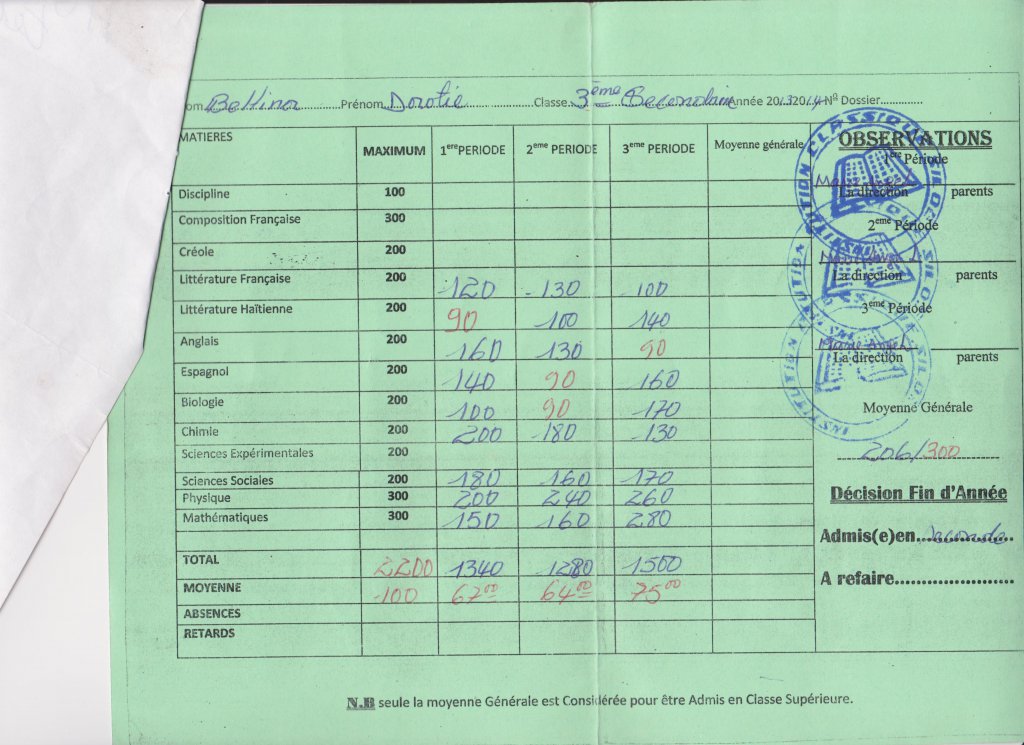 om Bellinor Prénom Dorotie Classe 3ème Secondaire Année 2013 2014 Nº Dossier
MATIERES MAXIMUM 1ere PERIODE 2eme PERIODE 3eme PERIODE Moyenne générale
Discipline 100
Composition Française 300
Créole 200
Littérature Française 200 120 130 100
Littérature Haïtienne 200 90 100 140
Anglais 200 160 130 90
Espagnol 200 140 90 160
Biologie 200 100 90 170
Chimie 200 200 180 130
Sciences Expérimentales 200
Sciences Sociales 200 180 160 170
Physique 300 200 240 260
Mathématiques 300 150 160 280
TOTAL 2200 1340 1280 1500
MOYENNE 100 67.00 64.00 75.00
ABSENCES
RETARDS
OBSERVATIONS
1ère Période
La direction parents
2eme Période
La direction parents
3eme Période
La direction parents
Moyenne Générale
206/300
Décision Fin d'Année
Admis(e)en seconde
A refaire
INSTITUTION CLASSIQUE
N.B seule la moyenne Générale est Considérée pour être Admis en Classe Supérieure.